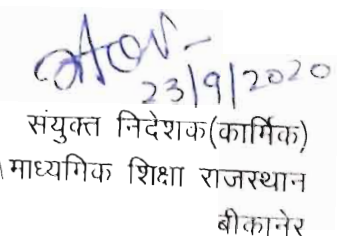 23/9/2020
संयुक्त निदेशक(कार्मिक)
माध्यमिक शिक्षा राजस्थान
बीकानेर